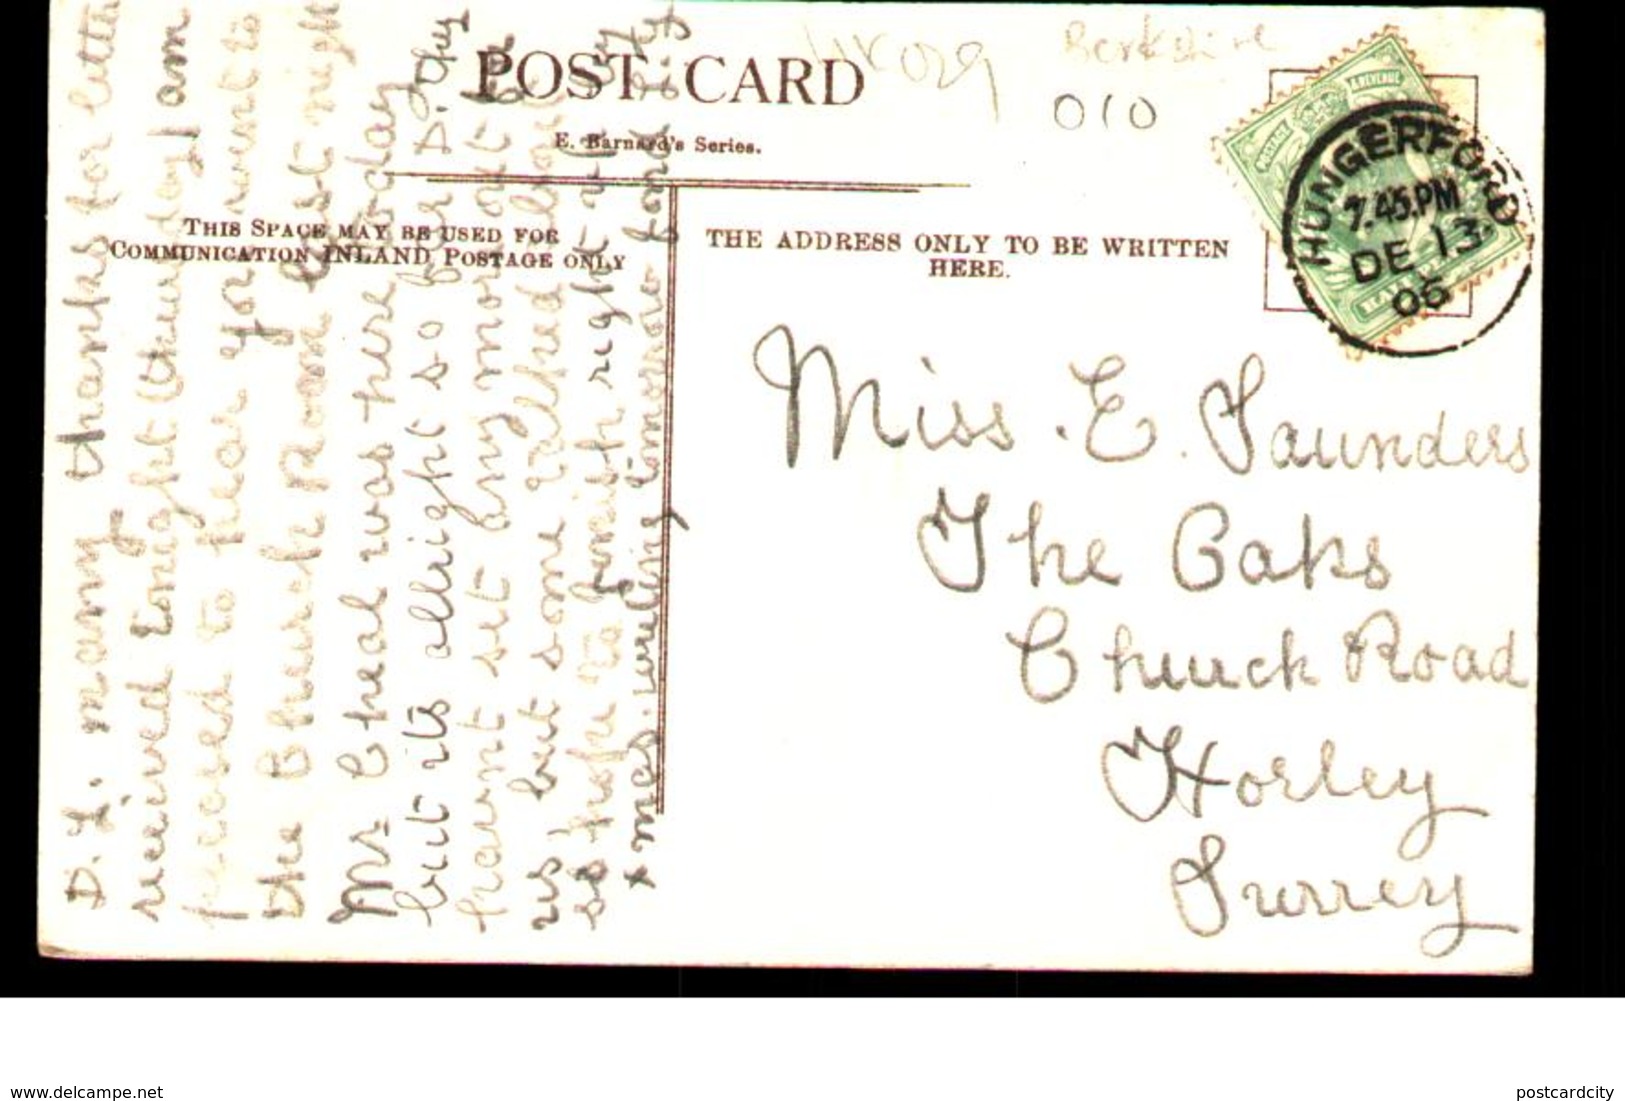 POST CARD
E. Barnard's Series.
UK029
Berkshire
010
THIS SPACE MAY BE USED FOR
COMMUNICATION INLAND POSTAGE ONLY
THE ADDRESS ONLY TO BE WRITTEN
HERE.
POSTAGE & REVENUE
HUNGERFORD
7.45.PM
DE 13
06
Miss. E. Saunders
The Oaks
Church Road
Horley
Surrey
D. L. many thanks for letter
received tonight (thursday) am
to hear you went to
the Church Room last night
Mr Cheal was here today
but its allright so far D. Guy
havnt set any more out
us, but some talked
so hope to finish right
x mas.
www.delcampe.net
postcardcity